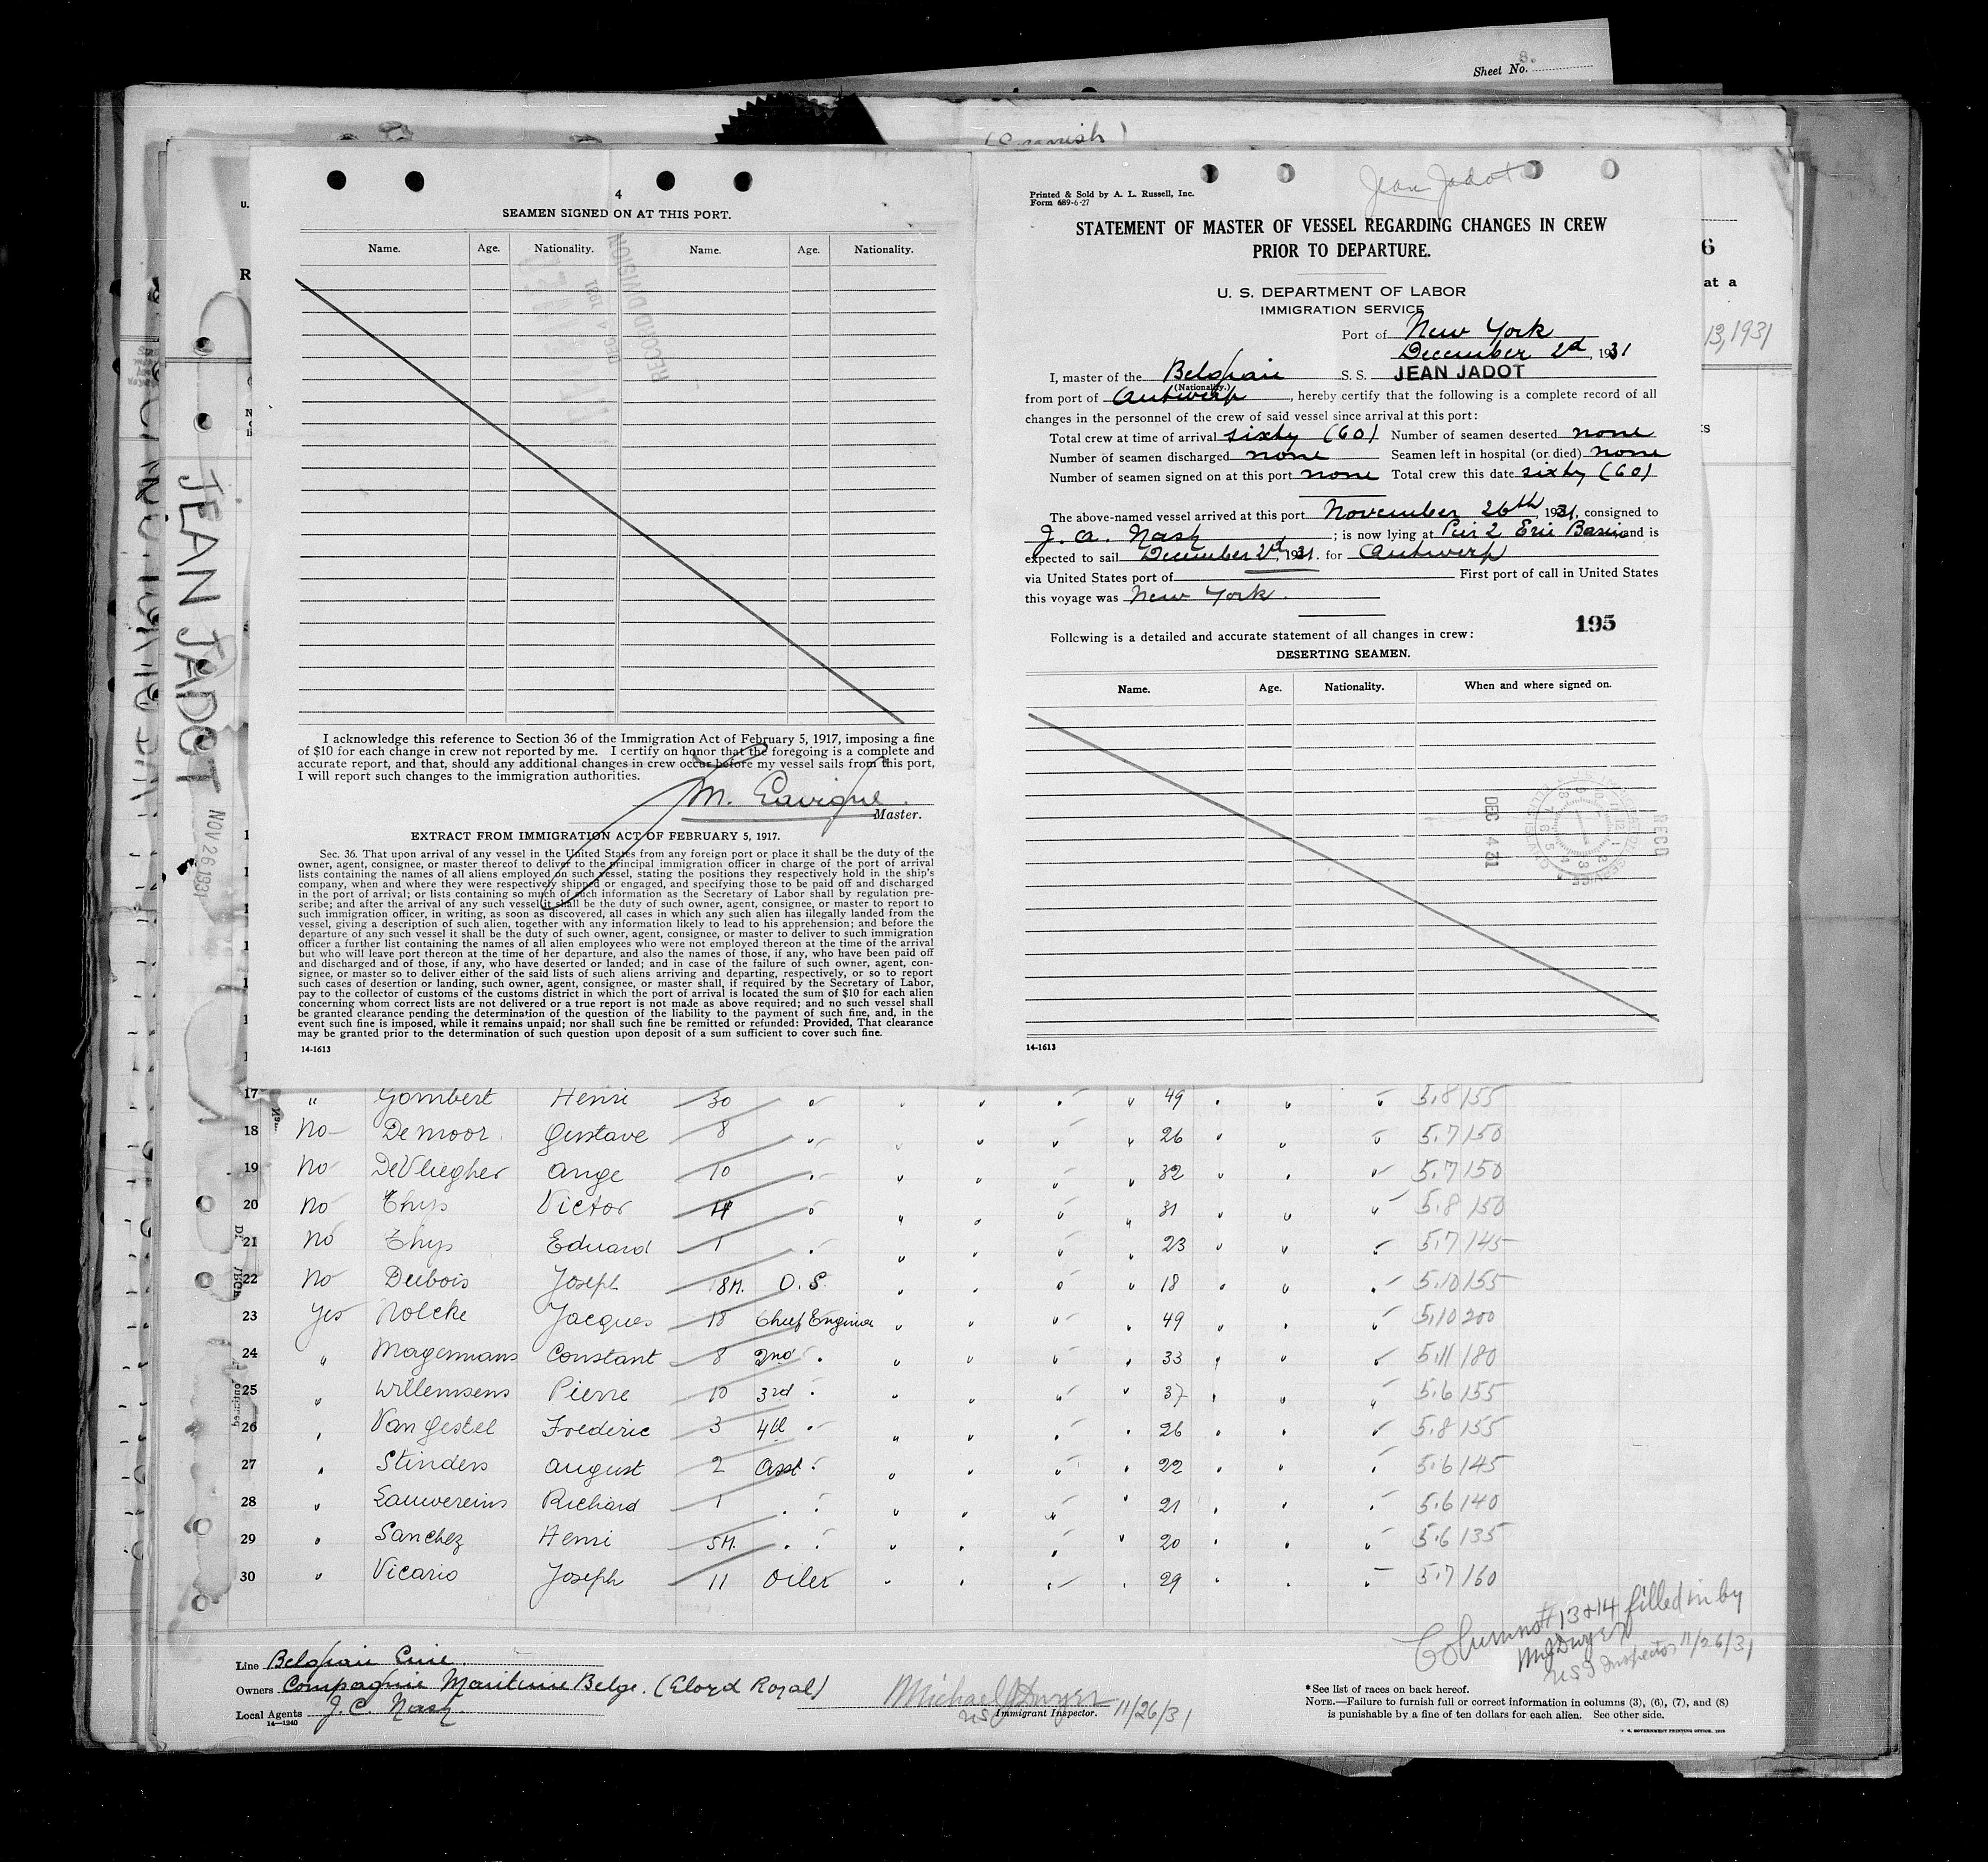 Sheet No. 8.
4
SEAMEN SIGNED ON AT THIS PORT.
Name. Age. Nationality. Name. Age. Nationality.
RECORD DIVISION
DEC 4 1931
I acknowledge this reference to Section 36 of the Immigration Act of February 5, 1917, imposing a fine
of $10 for each change in crew not reported by me. I certify on honor that the foregoing is a complete and
accurate report, and that, should any additional changes in crew occur before my vessel sails from this port,
I will report such changes to the immigration authorities.
M. Lavigne
Master.
EXTRACT FROM IMMIGRATION ACT OF FEBRUARY 5, 1917.
Sec. 36. That upon arrival of any vessel in the United States from any foreign port or place it shall be the duty of the
owner, agent, consignee, or master thereof to deliver to the principal immigration officer in charge of the port of arrival
lists containing the names of all aliens employed on such vessel, stating the positions they respectively hold in the ship's
company, when and where they were respectively shipped or engaged, and specifying those to be paid off and discharged
in the port of arrival; or lists containing so much of such information as the Secretary of Labor shall by regulation pre-
scribe; and after the arrival of any such vessel it shall be the duty of such owner, agent, consignee, or master to report to
such immigration officer, in writing, as soon as discovered, all cases in which any such alien has illegally landed from the
vessel, giving a description of such alien, together with any information likely to lead to his apprehension; and before the
departure of any such vessel it shall be the duty of such owner, agent, consignee, or master to deliver to such immigration
officer a further list containing the names of all alien employees who were not employed thereon at the time of the arrival
but who will leave port thereon at the time of her departure, and also the names of those, if any, who have been paid off
and discharged and of those, if any, who have deserted or landed; and in case of the failure of such owner, agent, con-
signee, or master so to deliver either of the said lists of such aliens arriving and departing, respectively, or so to report
such cases of desertion or landing, such owner, agent, consignee, or master shall, if required by the Secretary of Labor,
pay to the collector of customs of the customs district in which the port of arrival is located the sum of $10 for each alien
concerning whom correct lists are not delivered or a true report is not made as above required; and no such vessel shall
be granted clearance pending the determination of the question of the liability to the payment of such fine, and, in the
event such fine is imposed, while it remains unpaid; nor shall such fine be remitted or refunded: Provided, That clearance
may be granted prior to the determination of such question upon deposit of a sum sufficient to cover such fine.
14-1613
Jean Jadot
Printed & Sold by A. L. Russell, Inc.
Form 689-6-27
STATEMENT OF MASTER OF VESSEL REGARDING CHANGES IN CREW
PRIOR TO DEPARTURE.
U. S. DEPARTMENT OF LABOR
IMMIGRATION SERVICE
Port of New York
December 2d, 1931
I, master of the Belgian S. S. JEAN JADOT
(Nationality.)
from port of Antwerp, hereby certify that the following is a complete record of all
changes in the personnel of the crew of said vessel since arrival at this port:
Total crew at time of arrival sixty (60) Number of seamen deserted none
Number of seamen discharged none Seamen left in hospital (or died) none
Number of seamen signed on at this port none Total crew this date sixty (60)
The above-named vessel arrived at this port November 26th, 1931, consigned to
J. A. Nash; is now lying at Pier 2 Erie Basin and is
expected to sail December 2d, 1931. for Antwerp
via United States port of First port of call in United States
this voyage was New York.
195
Following is a detailed and accurate statement of all changes in crew:
DESERTING SEAMEN.
Name. Age. Nationality. When and where signed on.
RECD
DEC 4 31
14-1613
JEAN JADOT
NOV 26 1931
6
at a
13, 1931
17 " Gombert Henri 30 " " " " " 49 " " " 5.8 155
18 No Demoor Gustave 8 " " " " " 26 " " " 5.7 150
19 No DeVliegher Ange 10 " " " " " 32 " " " 5.7 150
20 No Thys Victor 14 " " " " " 31 " " " 5.8 150
21 No Thys Eduard 1 " " " " " 23 " " " 5.7 145
22 No Dubois Joseph 18M. O.S. " " " " 18 " " " 5.10 155
23 Yes Nolcke Jacques 18 Chief Engineer " " " " 49 " " " 5.10 200
24 " Magermans Constant 8 2nd " " " " " 33 " " " 5.11 180
25 " Willemsens Pierre 10 3rd " " " " " 37 " " " 5.6 155
26 " Van Gestel Frederic 3 4th " " " " " 26 " " " 5.8 155
27 " Stinders August 2 Asst " " " " " 22 " " " 5.6 145
28 " Lauwereins Richard 1 " " " " " " 21 " " " 5.6 140
29 " Sanchez Henri 5M. " " " " " " 20 " " " 5.6 135
30 " Vicario Joseph 11 Oiler " " " " 29 " " " 5.7 160
Columns #13 & 14 filled in by
MJDwyer
US I Inspector 11/26/31
Line Belgian Line.
Owners Compagnie Maritime Belge. (Lloyd Royal)
Local Agents J. C. Nash.
14-1240
Michael J Dwyer 11/26/31
US Immigrant Inspector.
*See list of races on back hereof.
NOTE.—Failure to furnish full or correct information in columns (3), (6), (7), and (8)
is punishable by a fine of ten dollars for each alien. See other side.
U. S. GOVERNMENT PRINTING OFFICE